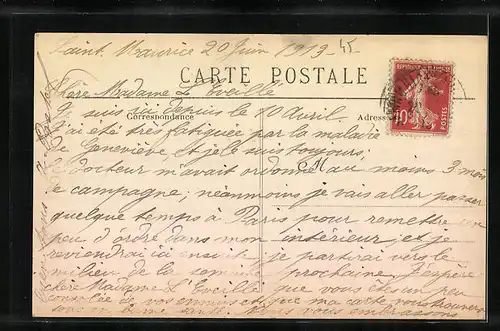 Saint Maurice 20 Juin 1913
CARTE POSTALE
Chère Madame L'Eveillé
Je suis ici depuis le 10 Avril.
Correspondance
Adresse
J'ai été très fatiguée par la maladie
de Geneviève et je le suis toujours.
M
Le docteur m'avait ordonné au moins 3 mois
de campagne; néanmoins je vais aller passer
quelque temps à Paris pour remettre un
peu d'ordre dans mon intérieur, et je
reviendrai ici ensuite je partirai vers le
milieu de la semaine prochaine. J'espère
chère Madame L'Eveillé que vous êtes un peu
consolée de vos ennuis et que ma carte vous trouvera
en bonne santé. Nous vous embrassons
REPUBLIQUE FRANÇAISE
10
POSTES